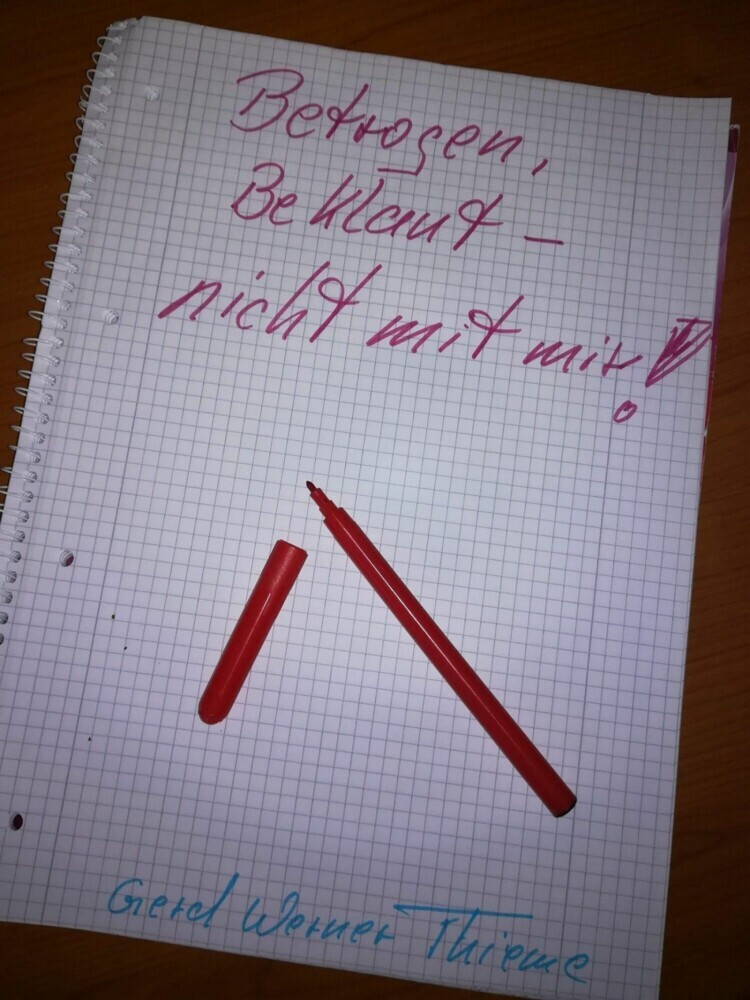 Betrogen,
Beklaut –
nicht mit mir!
Gerd Werner Thieme